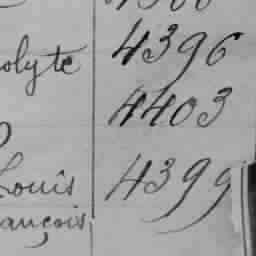 olyte 4396
4403
Louis 4399
ançois